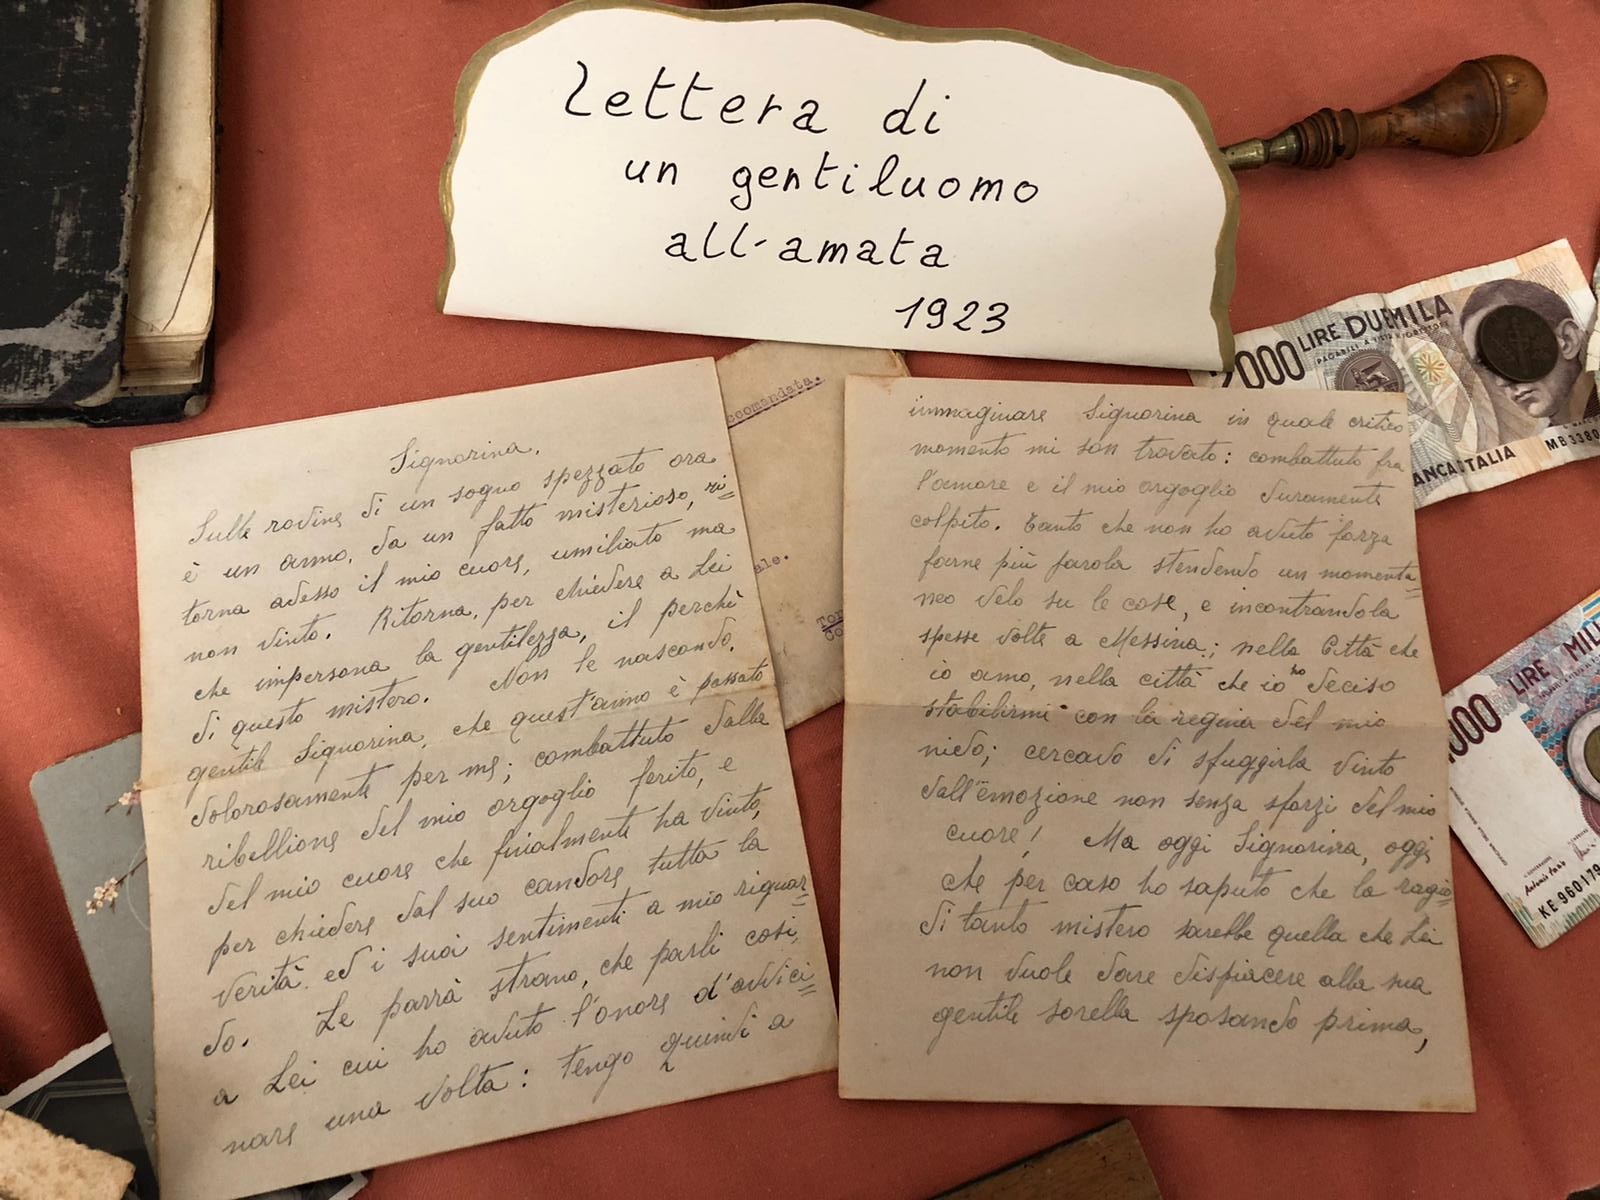 Lettera di
un gentiluomo
all-amata
1923
ccomandata.
ale.
Signorina,
Sulle rovine di un sogno spezzato ora
è un anno, da un fatto misterioso, ri=
torna adesso il mio cuore, umiliato ma
non vinto. Ritorna, per chiedere a Lei
che impersona la gentilezza, il perchè
di questo mistero. Non le nascondo,
gentile Signorina, che quest'anno è passato
dolorosamente per me; combattuto dalla
ribellione del mio orgoglio ferito, e
del mio cuore che finalmente ha vinto,
per chiedere dal suo candore tutta la
verità ed i suoi sentimenti a mio riguar=
do. Le parrà strano, che parli così,
a Lei cui ho avuto l'onore d'avvici=
nare una volta: tengo quindi a
immaginare Signorina in quale critico
momento mi son trovato: combattuto fra
l'amore e il mio orgoglio duramente
colpito. Tanto che non ho avuto forza
farne più parola stendendo un momenta=
neo velo su le cose, e incontrandola
spesse volte a Messina; nella Città che
io amo, nella città che io ho deciso
stabilirmi con la regina del mio
nido; cercavo di sfuggirla vinto
dall'emozione non senza sforzi del mio
cuore! Ma oggi Signorina, oggi
che per caso ho saputo che la ragio=
di tanto mistero sarebbe quella che Lei
non vuole dare dispiacere alla sua
gentile sorella sposando prima,
2000 LIRE DUEMILA
BANCA D'ITALIA
MB 3380
1000 LIRE MILL
KE 960179